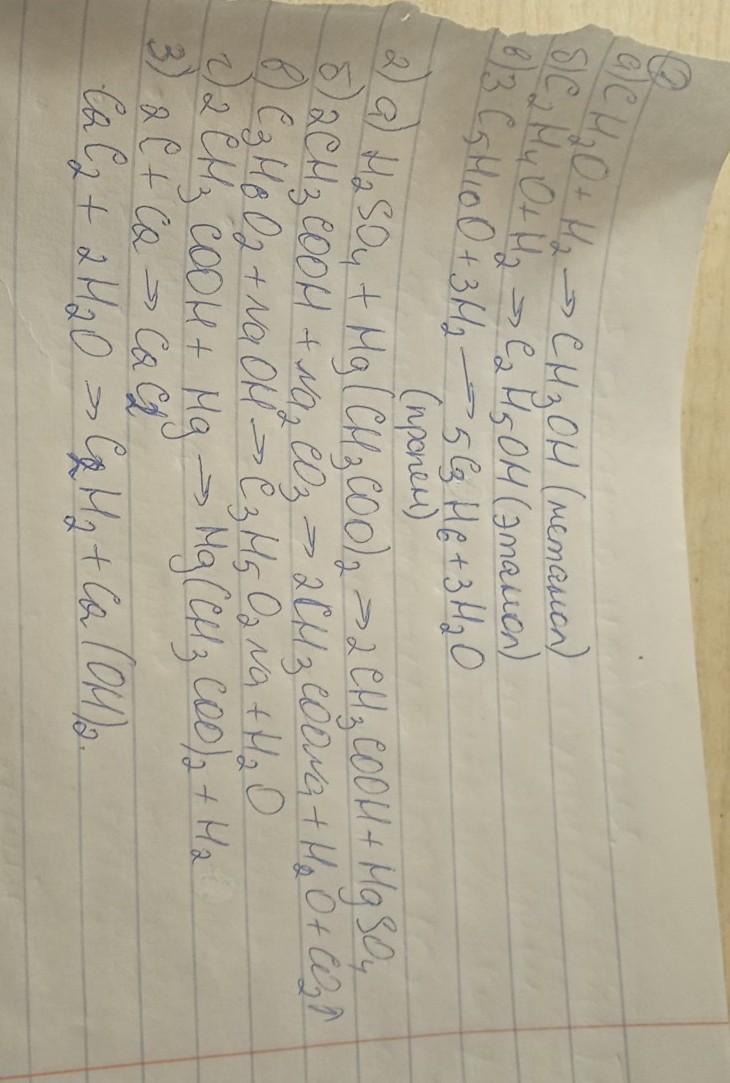 ①
а) CH₂O + H₂ → CH₃OH (метанол)
б) C₂H₄O + H₂ → C₂H₅OH (этанол)
в) 3C₅H₁₀O + 3H₂ → 5C₃H₆ + 3H₂O
(пропен)
2) а) H₂SO₄ + Mg(CH₃COO)₂ → 2CH₃COOH + MgSO₄
б) 2CH₃COOH + Na₂CO₃ → 2CH₃COONa + H₂O + CO₂↑
в) C₃H₆O₂ + NaOH → C₃H₅O₂Na + H₂O
г) 2CH₃COOH + Mg → Mg(CH₃COO)₂ + H₂
3) 2C + Ca → CaC₂
CaC₂ + 2H₂O → C₂H₂ + Ca(OH)₂.